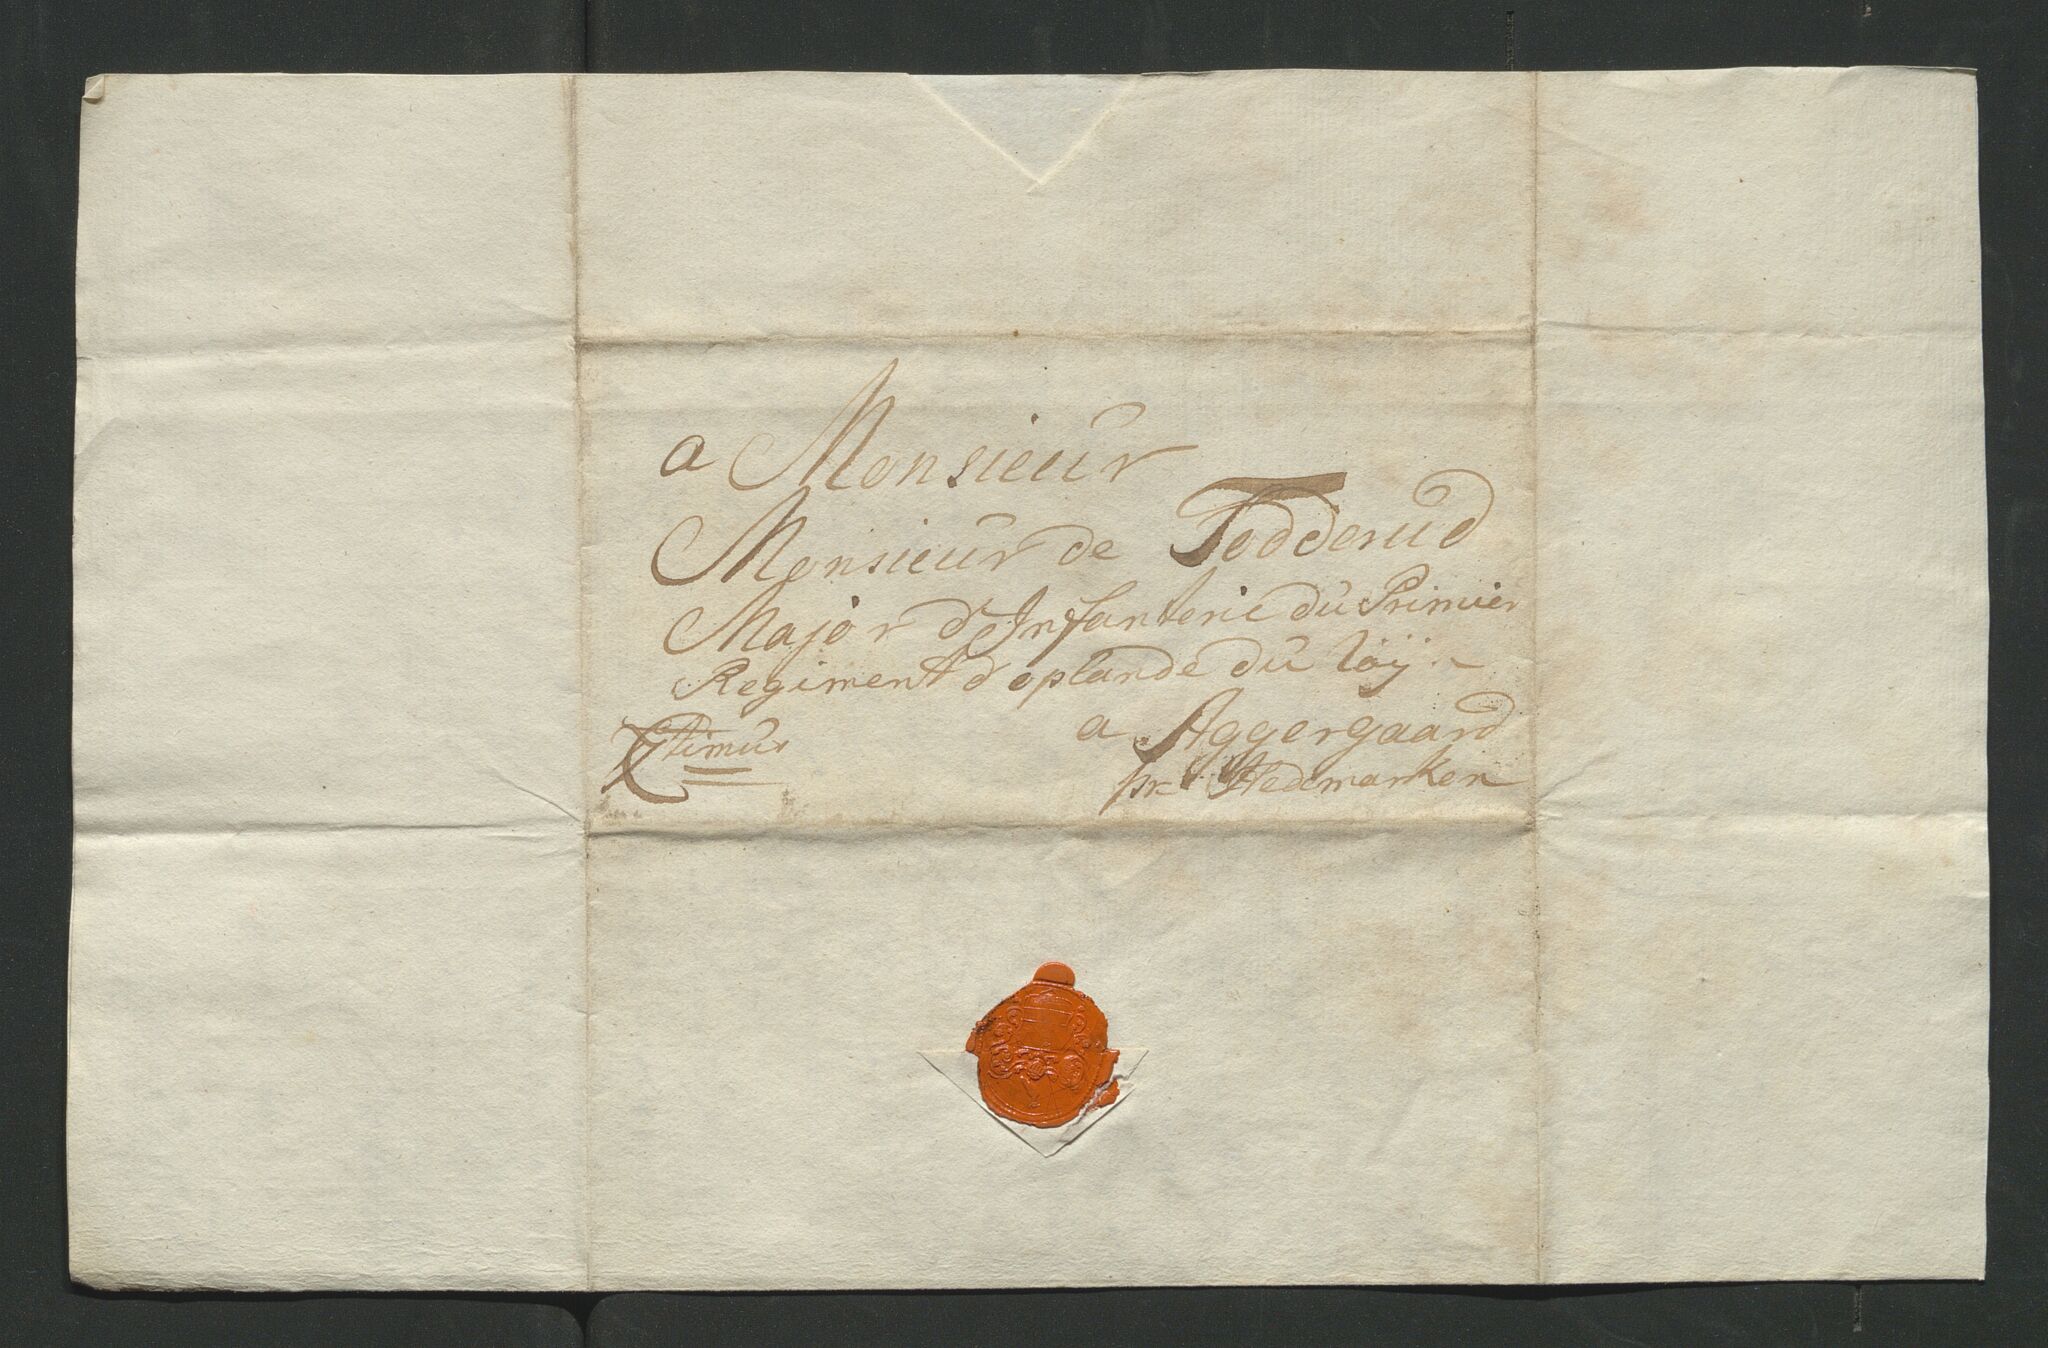 a Monsieur
Monsieur de Todderud
Major d'Infanterie du Primier
Regiment d'oplande du Röÿ.
a Aggergaard
pr Hedemarken
Cītimus